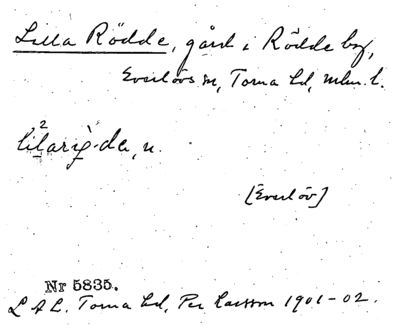 Lilla Rödde, gård i Rödde by,
Everlövs sn, Torna hd, mlm. l.
n.
[Everlöv]
Nr 5835.
L A L. Torna hd, Per Larsson 1901-02.